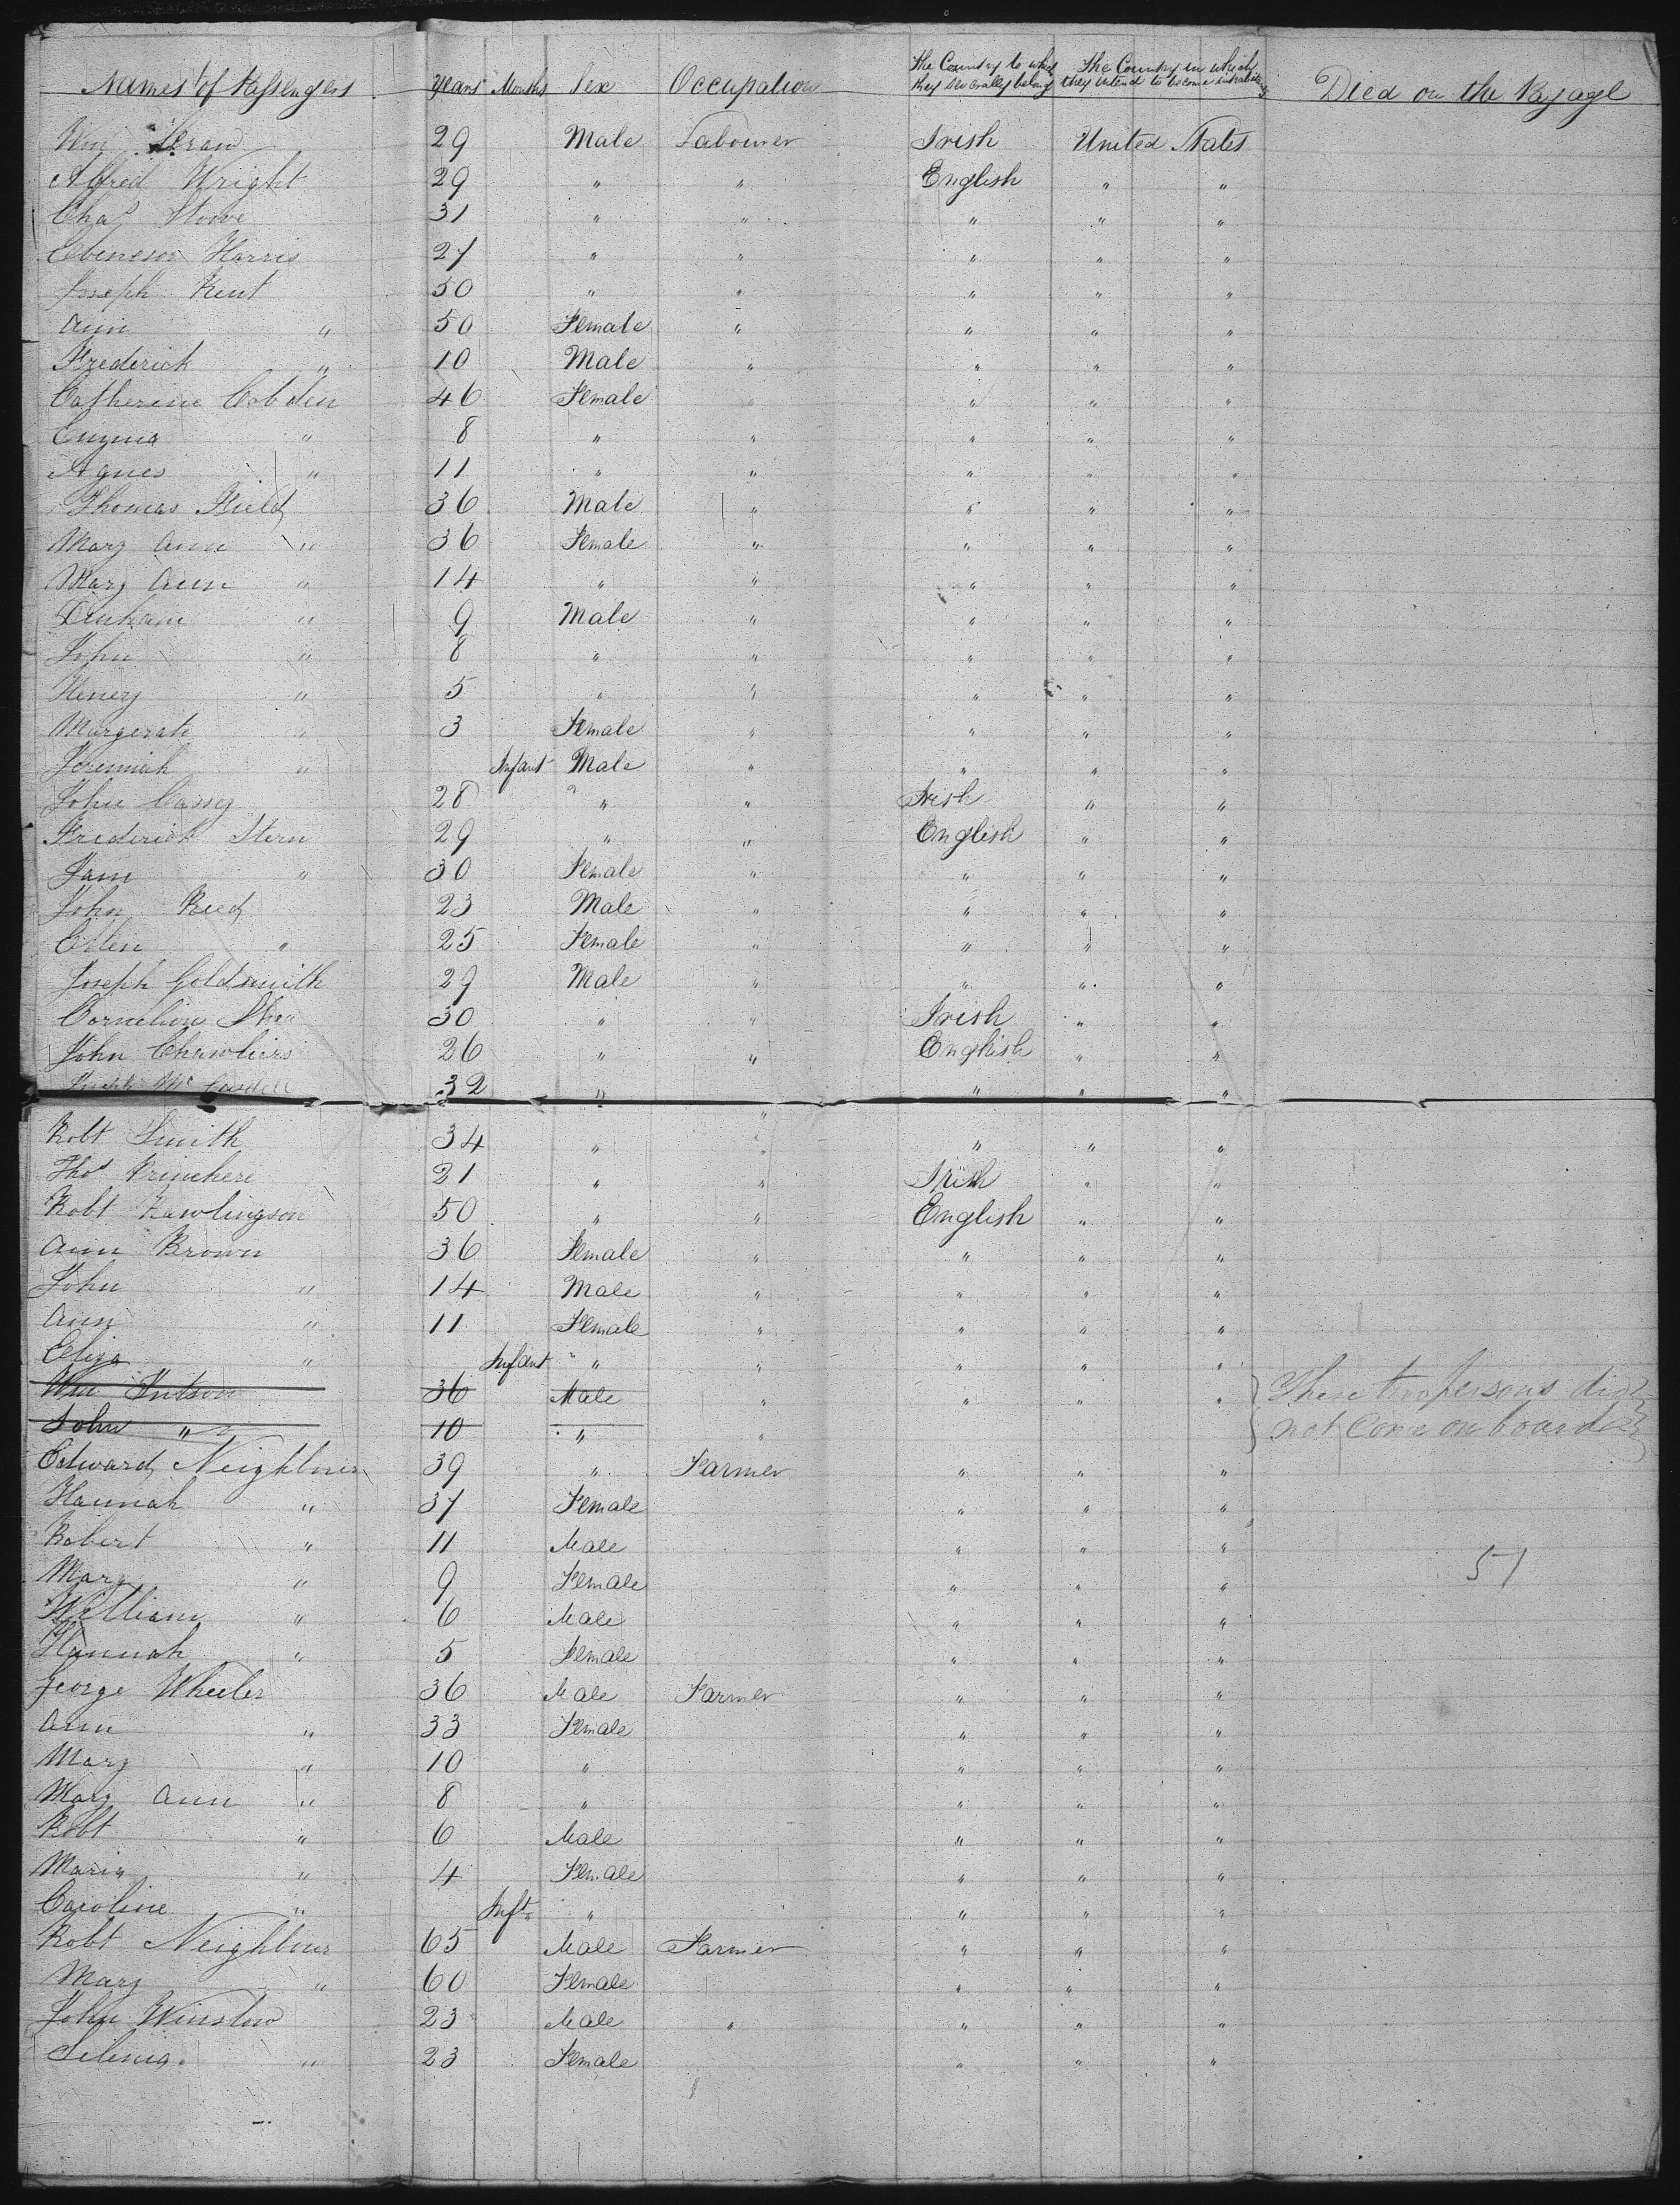 Names of Passengers Years Months Sex Occupation The Country to which they severally belong The Country in which they intend to become inhabitants Died on the Voyage
Wm 29 Male Labourer Irish United States
Alfred Wright 29 " " English " "
Chas Stowe 31 " " " " "
Ebineser Harris 27 " " " " "
Joseph Kent 50 " " " " "
Ann " 50 Female " " " "
Frederick " 10 Male " " " "
Catherine Cobden 46 Female " " " "
" 8 " " " " "
Agnes " 11 " " " " "
Thomas Field 36 Male " " " "
Mary Ann " 36 Female " " " "
Mary Ann " 14 " " " " "
Denham " 9 Male " " " "
John " 8 " " " " "
Henery " 5 " " " " "
Margerate " 3 Female " " " "
Jeremiah " Infant Male " " " "
John Casey 28 " " Irish " "
Frederick Stern 29 " " English " "
Jane " 30 Female " " " "
John Reed 23 Male " " " "
Ellen " 25 Female " " " "
Joseph Goldsmith 29 Male " " " "
Cornelius Shea 30 " " Irish " "
John 26 " " English " "
Joseph Mc 32 " " " " "
Robt Smith 34 " " " " "
Thos 21 " " Irish " "
Robt Rawlingson 50 " " English " "
Ann Brown 36 Female " " " "
John " 14 Male " " " "
Ann " 11 Female " " " "
Eliza " Infant " " " " "
Wm Jutson 36 Male " " " " These two persons did
John " 10 " " not Come on board
Edward Neighbour 39 " Farmer " " "
Hannah " 37 Female " " "
Robert " 11 Male " " "
Mary " 9 Female " " " 51
William " 6 Male " " "
Hannah " 5 Female " " "
George Wheeler 36 Male Farmer " " "
Ann " 33 Female " " "
Mary " 10 " " " "
Mary Ann " 8 " " " "
Robt " 6 Male " " "
Maria " 4 Female " " "
Caroline " Inft " " " "
Robt Neighbour 65 Male Farmer " " "
Mary " 60 Female " " "
John Winslow 23 Male " " " "
Selenia " 23 Female " " "